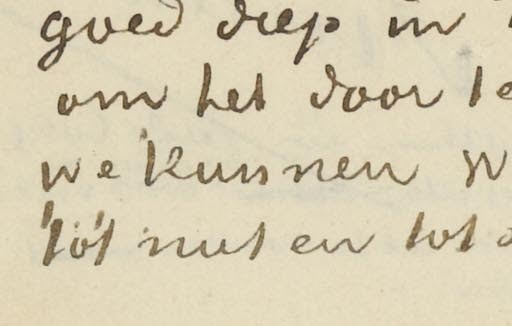 goed diep in
om het door te
we kunnen w
tot nut en tot